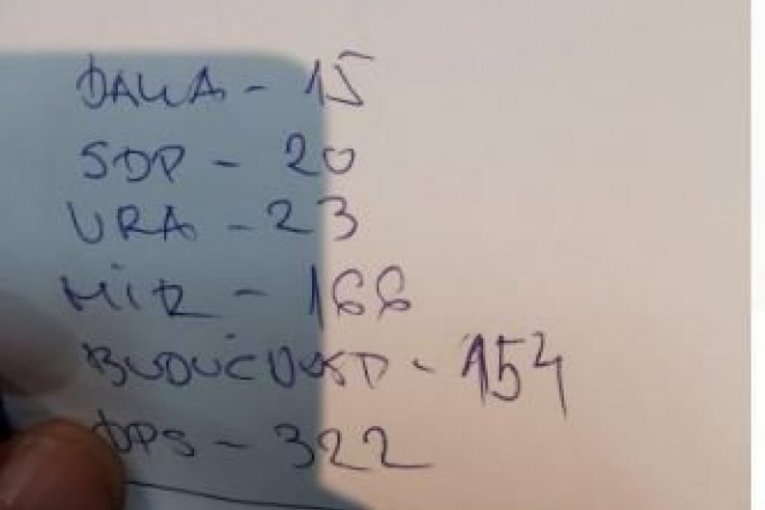 DAKA - 15
SDP - 20
URA - 23
MIR - 166
BUDUĆNOST - 154
DPS - 322